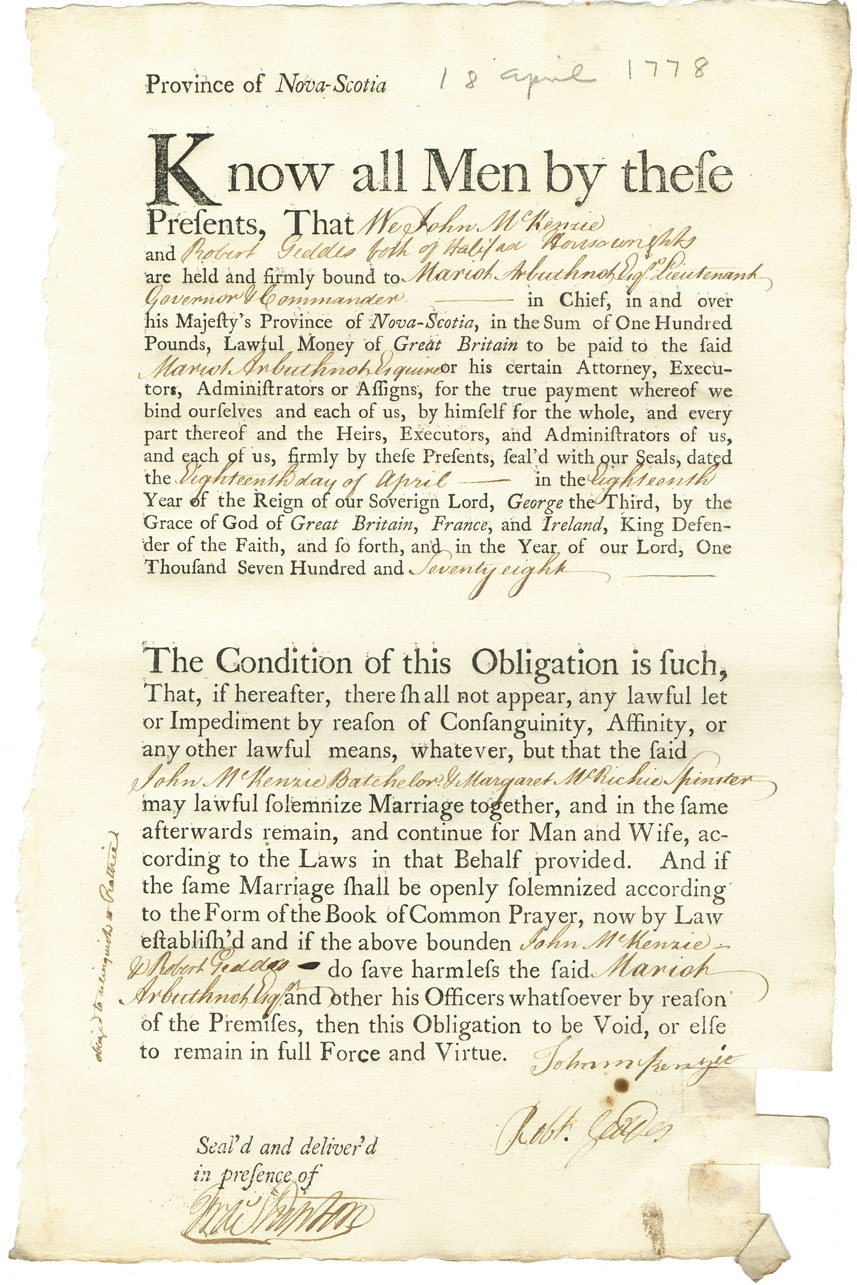 Province of Nova-Scotia 18 april 1778
Know all Men by theſe
Preſents, That We John McKenzie
and Robert Geddes both of Halifax Housewrights
are held and firmly bound to Mariot Arbuthnot Esqr. Lieutenant
Governor & Commander in Chief, in and over
his Majeſty's Province of Nova-Scotia, in the Sum of One Hundred
Pounds, Lawful Money of Great Britain to be paid to the ſaid
Mariot Arbuthnot Esquire or his certain Attorney, Execu-
tors, Adminiſtrators or Aſſigns, for the true payment whereof we
bind ourſelves and each of us, by himſelf for the whole, and every
part thereof and the Heirs, Executors, and Adminiſtrators of us,
and each of us, firmly by theſe Preſents, ſeal'd with our Seals, dated
the Eighteenth day of April in the Eighteenth
Year of the Reign of our Soverign Lord, George the Third, by the
Grace of God of Great Britain, France, and Ireland, King Defen-
der of the Faith, and ſo forth, and in the Year of our Lord, One
Thouſand Seven Hundred and Seventy eight
The Condition of this Obligation is ſuch,
That, if hereafter, there ſhall not appear, any lawful let
or Impediment by reaſon of Conſanguinity, Affinity, or
any other lawful means, whatever, but that the ſaid
John McKenzie Batchelor & Margaret McRichie Spinster
may lawful ſolemnize Marriage together, and in the ſame
afterwards remain, and continue for Man and Wife, ac-
cording to the Laws in that Behalf provided. And if
the ſame Marriage ſhall be openly ſolemnized according
to the Form of the Book of Common Prayer, now by Law
eſtabliſh'd and if the above bounden John McKenzie
& Robert Geddes do ſave harmleſs the ſaid Mariot
Arbuthnot Esqr. and other his Officers whatſoever by reaſon
of the Premiſes, then this Obligation to be Void, or elſe
to remain in full Force and Virtue. John mckenzie
Robt. Geddes
Seal'd and deliver'd
in preſence of
to relinquish